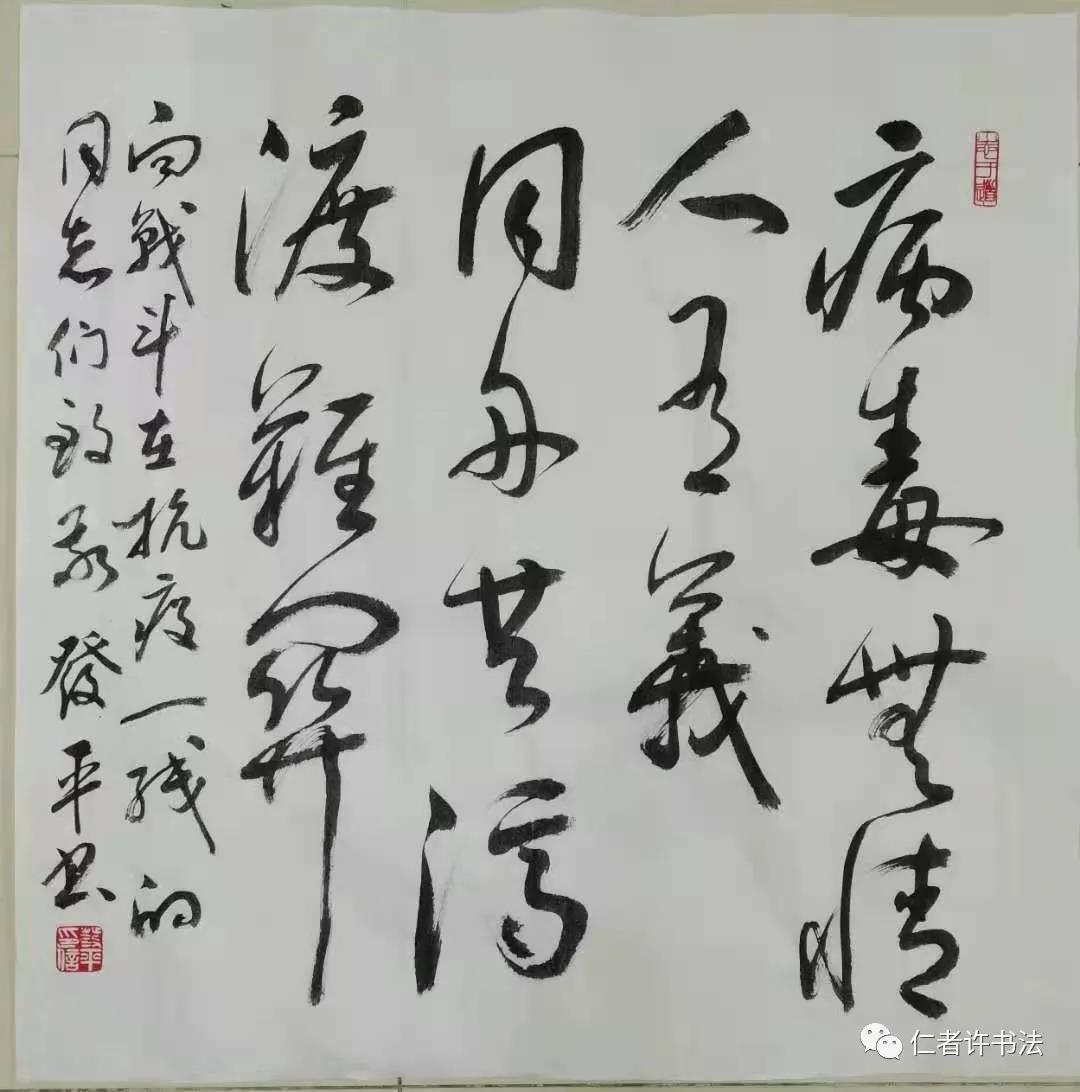 病毒無情
人有義
同舟共濟
渡難關
向戰斗在抗疫一线的
同志们致敬 發平书
仁者许书法